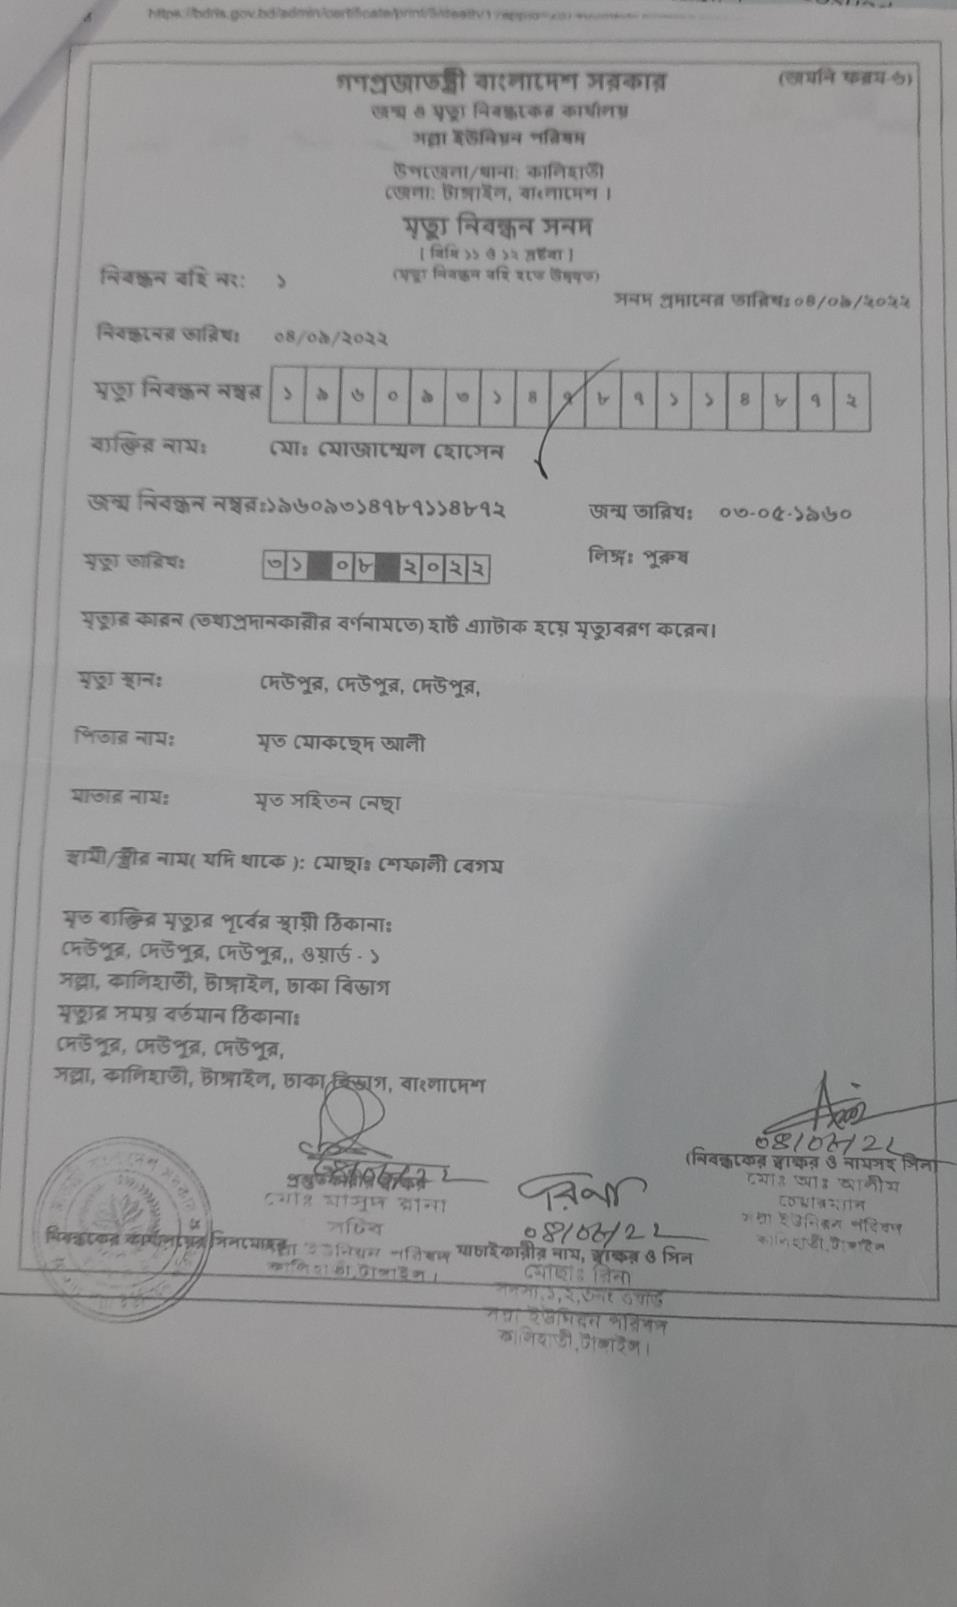 গণপ্রজাতন্ত্রী বাংলাদেশ সরকার
(জমনি ফরম-৬)
জন্ম ও মৃত্যু নিবন্ধকের কার্যালয়
সল্লা ইউনিয়ন পরিষদ
উপজেলা/থানা: কালিহাতী
জেলা: টাঙ্গাইল, বাংলাদেশ ।
মৃত্যু নিবন্ধন সনদ
[ বিধি ১১ ও ১২ দ্রষ্টব্য ]
(মৃত্যু নিবন্ধন বহি হতে উদ্ধৃত)
নিবন্ধন বহি নং: ১
সনদ প্রদানের তারিখঃ০৪/০৯/২০২২
নিবন্ধনের তারিখঃ ০৪/০৯/২০২২
মৃত্যু নিবন্ধন নম্বর ১ ৯ ৬ ০ ৯ ৩ ১ ৪ ৭ ৮ ৭ ১ ১ ৪ ৮ ৭ ২
ব্যক্তির নামঃ মোঃ মোজাম্মেল হোসেন
জন্ম নিবন্ধন নম্বরঃ১৯৬০৯৩১৪৭৮৭১১৪৮৭২ জন্ম তারিখঃ ০৩-০৫-১৯৬০
মৃত্যু তারিখঃ ৩১ ০৮ ২০২২ লিঙ্গঃ পুরুষ
মৃত্যুর কারন (তথ্যপ্রদানকারীর বর্ণনামতে) হার্ট এ্যাটাক হয়ে মৃত্যুবরণ করেন।
মৃত্যু স্থানঃ দেউপুর, দেউপুর, দেউপুর,
পিতার নামঃ মৃত মোকছেদ আলী
মাতার নামঃ মৃত সহিতন নেছা
স্বামী/স্ত্রীর নাম( যদি থাকে ): মোছাঃ শেফালী বেগম
মৃত ব্যক্তির মৃত্যুর পূর্বের স্থায়ী ঠিকানাঃ
দেউপুর, দেউপুর, দেউপুর,, ওয়ার্ড - ১
সল্লা, কালিহাতী, টাঙ্গাইল, ঢাকা বিভাগ
মৃত্যুর সময় বর্তমান ঠিকানাঃ
দেউপুর, দেউপুর, দেউপুর,
সল্লা, কালিহাতী, টাঙ্গাইল, ঢাকা বিভাগ, বাংলাদেশ
(নিবন্ধকের স্বাক্ষর ও নামসহ সিল)
মোঃ আঃ আলীম
চেয়ারম্যান
সল্লা ইউনিয়ন পরিষদ
কালিহাতী, টাঙ্গাইল
মোঃ মাসুদ রানা
সচিব
ইউনিয়ন পরিষদ
কালিহাতী, টাঙ্গাইল।
নিবন্ধকের কার্যালয়ের সিলমোহর
রিনা
যাচাইকারীর নাম, স্বাক্ষর ও সিল
মোছাঃ রিনা
সদস্য, ১, ২, ৩নং ওয়ার্ড
সল্লা ইউনিয়ন পরিষদ
কালিহাতী, টাঙ্গাইল।